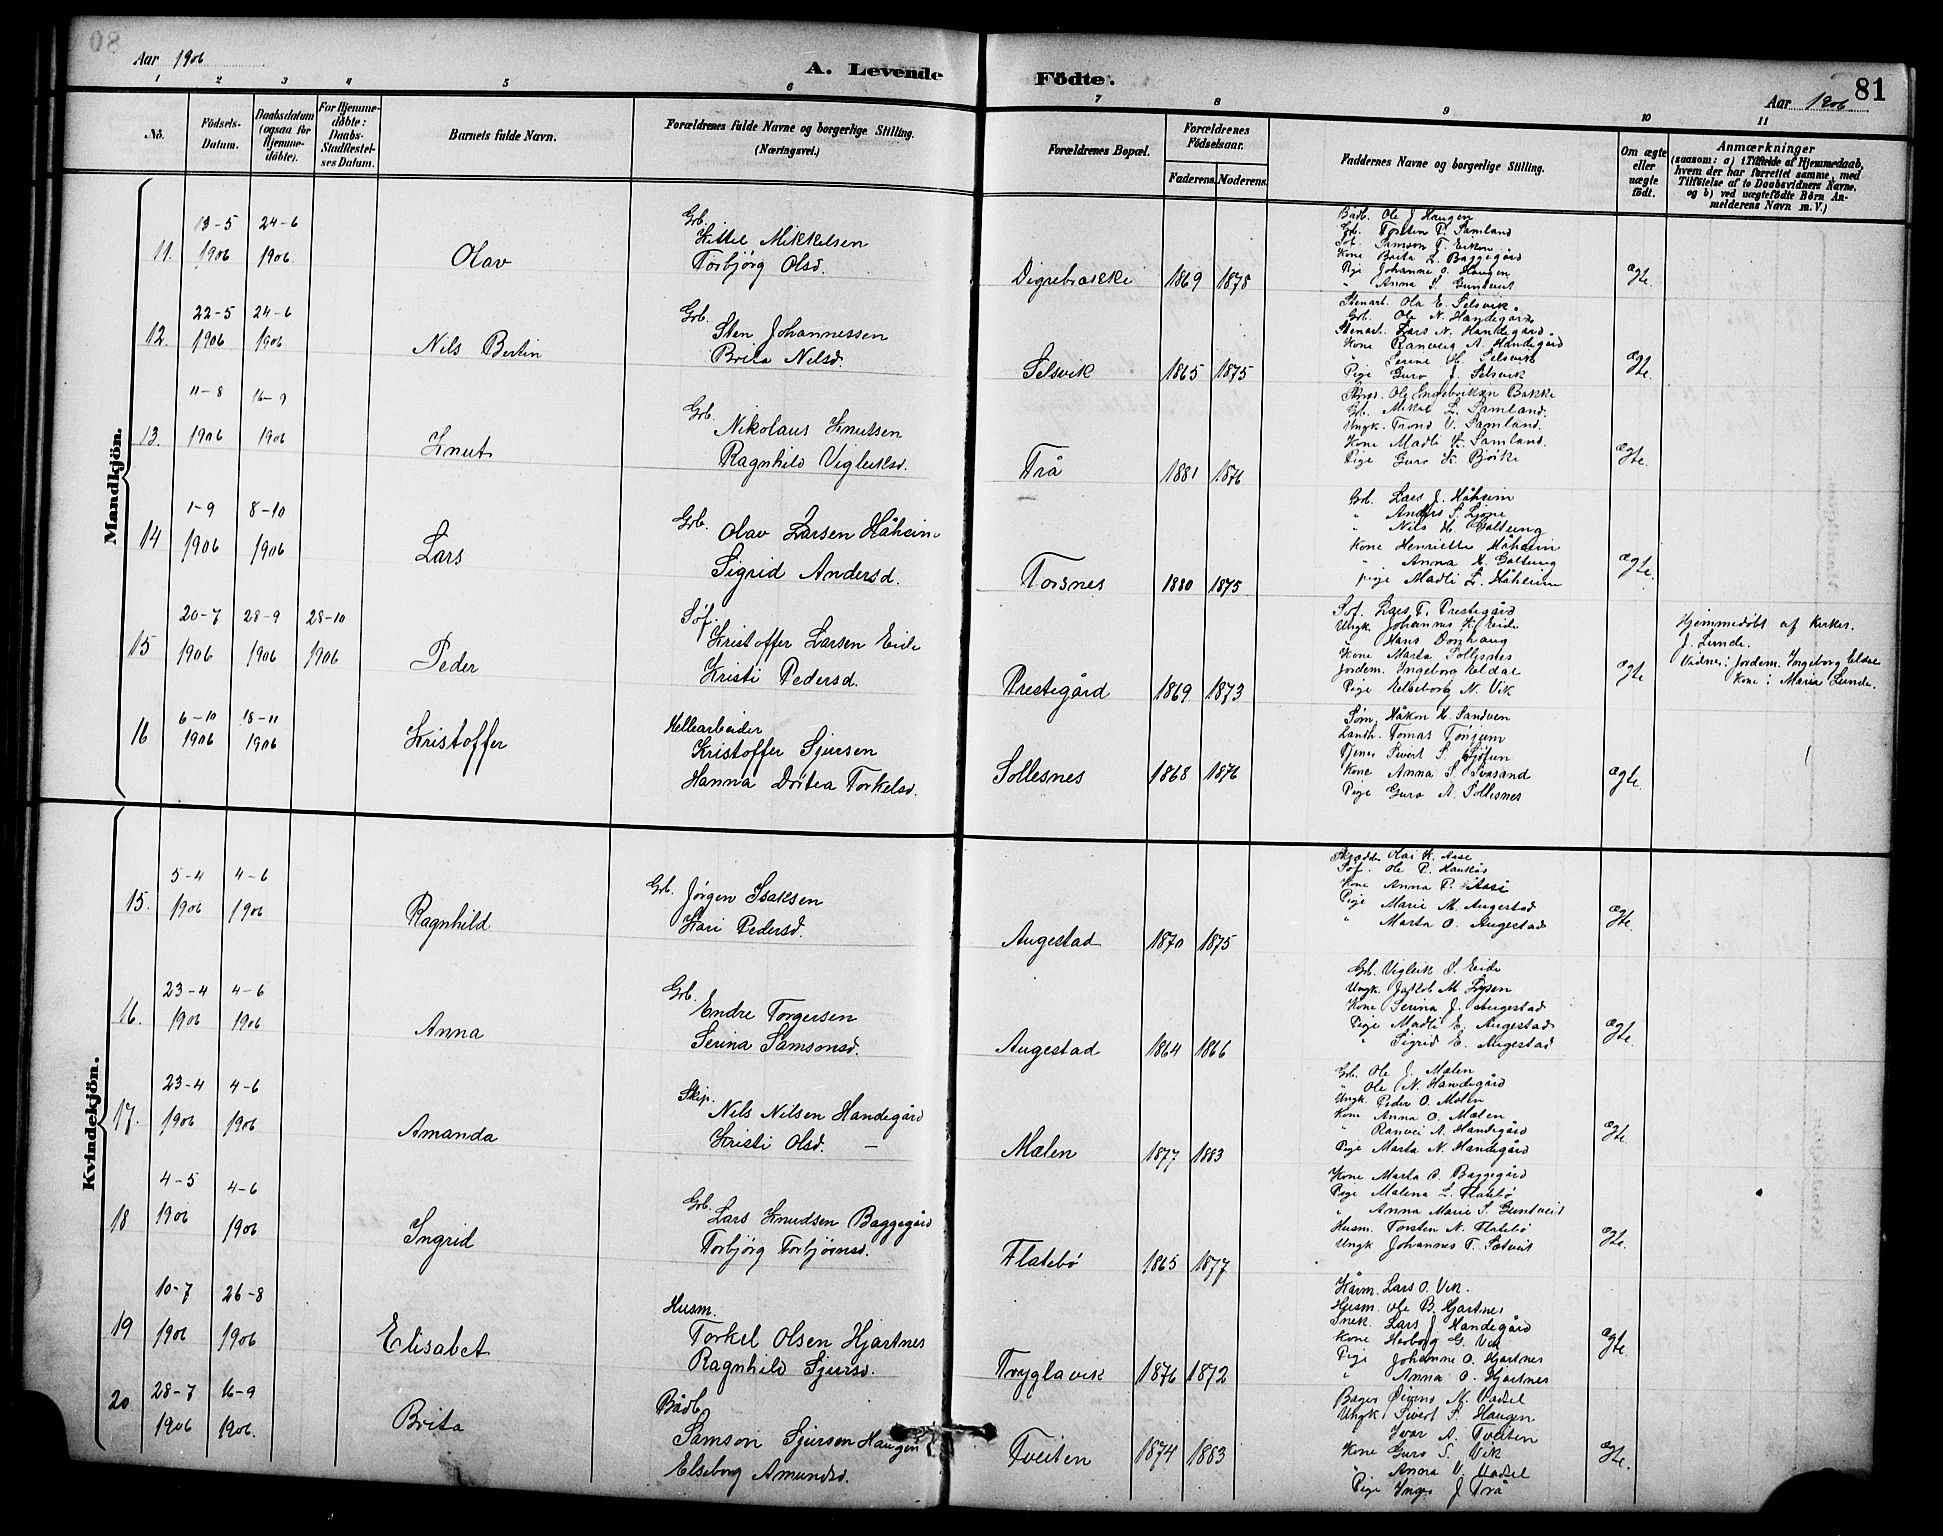 Aar 1906
A. Levende Födte.
Aar 1906
81
1 2 3 4 5 6 7 8 9 10 11
No.
Födsels-Datum.
Daabsdatum (ogsaa for Hjemme-döbte).
For Hjemme-döbte: Daabs-Stadfæstel-ses Datum.
Barnets fulde Navn.
Forældrenes fulde Navne og borgerlige Stilling. (Næringsvei.)
Forældrenes Bopæl.
Forældrenes Födselsaar.
Faderens. Moderens.
Faddernes Navne og borgerlige Stilling.
Om ægte eller uægte födt.
Anmærkninger
(saasom: a) i Tilfælde af Hjemmedaab,
hvem der har forrettet samme, med
Tilföielse af to Daabsvidners Navne,
og b) ved uægtefödte Börn An-
melderens Navn m. V.)
Mandkjön.
11. 13-5 1906 24-6 1906. Olav
Grb. Kittel Mikkelsen
Torbjörg Olsd.
Digrebrække 1869 1878 Ægte.
Bådb. Ole J Haugen
Grb. Torsten P. Samland
Söf. Samson T. Eikon
Kone Brita L. Baggegård
Pige Johanne O. Haugen
" Anna S. Gundveit
12. 22-5 1906 24-6 1906 Nils Bertin
Grb. Sten Johannessen
Brita Nilsd.
Selsvik 1865 1875 Ægte.
Stenarb. Ola E. Selsvik
Grb. Ole N. Handegård
Stenarb. Lars N. Handegård
Kone Ranveig A. Handegård
" Serine H. Selsvik
Pige Guro J. Selsvik
13. 11-8 1906 16-9 1906 Knut
Grb. Nikolaus Knutsen
Ragnhild Vigleiksd.
Trå 1881 1876 Ægte.
Ole Engebriksen Bakke
Grb. Mikal L. Samland.
Ungk. Trond V. Samland.
Kone Madli K. Samland.
Pige Guro K. Bjöke
14 1-9 1906 8-10 1906 Lars
Grb. Olav Larsen Håheim
Sigrid Andersd.
Torsnes 1880 1875 Ægte.
Grb. Lars J. Håheim
" Anders S. Ljone
" Nils H. Galtung
Kone Henriette Håheim
" Anna H. Galtung
pige Madli L. Håheim
15 20-7 1906 28-9 1906 28-10 1906 Peder
Söf. Kristoffer Larsen Eide
Kristi Pedersd.
Prestegård 1869 1873 Ægte
Söf. Lars T. Prestegård
Ungk. Johannes K. Eide
" Hans Domhaug
Kone Marta Sollesnes
Jordem. Ingeborg Eldal
Pige Elseborg N. Vik
Hjemmedöbt af kirkes.
J. Lunde.
Vidner: Jordem. Ingeborg Eldal
Kone: Maria Lunde.
16 6-10 1906 18-11 1906 Kristoffer
Hellearbeider Kristoffer Sjursen
Hanna Dortea Torkelsd.
Sollesnes 1868 1876 Ægte.
Håkon H. Sandven
Landh. Tomas Tonjum
Tjener Sivert S.
Kone Anna S.
Pige Guro A. Sollesnes
Kvindekjön.
15. 5-4 1906 4-6 1906 Ragnhild
Grb. Jörgen Isaksen
Kari Pedersd.
Augestad 1870 1875 Ægte.
Skrædder Olai K. Aase
Söf. Ole P. Haukås
Kone Anna P. Aase
Pige Marie M. Augestad
" Marta O. Augestad
16. 23-4 1906 4-6 1906 Anna
Grb. Endre Torgersen
Serina Samsonsd.
Augestad 1864 1866 Ægte.
Grb. Vigleik S. Eide
Ungk. Jakob M Lysen
Kone Serina J. Augestad
Pige Madli E. Augestad
" Sigrid E. Augestad
17. 23-4 1906 4-6 1906 Amanda
Skip. Nils Nilsen Handegård
Kristi Olsd. —
Mælen 1877 1883 Ægte.
Grb. Ole J. Mælen
" Ole N. Handegård
Ungk. Peder O. Mælen
Kone Anna O. Mælen
" Ranvei A. Handegård
Pige Marta N. Handegård
18 4-5 1906 4-6 1906 Ingrid
Grb. Lars Knudsen Baggegård
Torbjörg Torbjörnsd.
Flatebö 1865 1877 Ægte.
Kone Marta O. Baggegård
Pige Malena L. Flatebö
" Anna Marie S. Gundveit
Husm. Torsten N. Flatebö
Ungk Johannes T. Sætveit
19 10-7 1906 26-8 1906 Elisabet
Husm. Torkel Olsen Hjartnes
Ragnhild Sjursd.
Tryglavik 1876 1872 Ægte.
Kårm. Lars O. Vik.
Husm. Ole B. Hjartnes
Snek. Lars J Handegård
Kone Herborg G. Vik
Pige Johanne O. Hjartnes
" Anna O. Hjartnes
20 28-7 1906 16-9 1906. Brita
Bådb. Samson Sjursen Haugen
Elseborg Amundsd.
Tveiten 1874 1883 Ægte.
Bager Öivind N. Vadsel
Ungk Sivert S. Haugen
Ivar A. Tveiten
Kone Guro S. Vik
" Anna V. Vadsel
Pige Inga J Trå